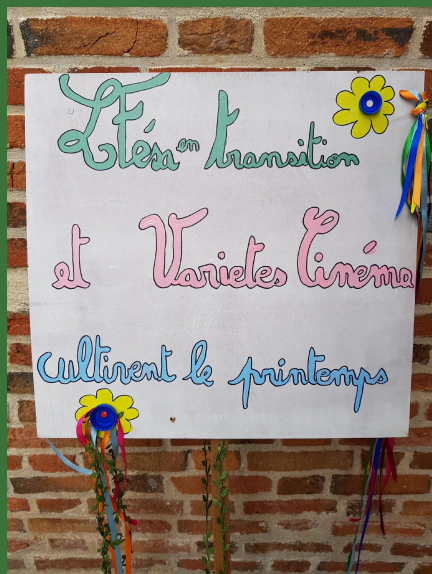 LFésa en transition
et Varietes Cinéma
cultivent le printemps